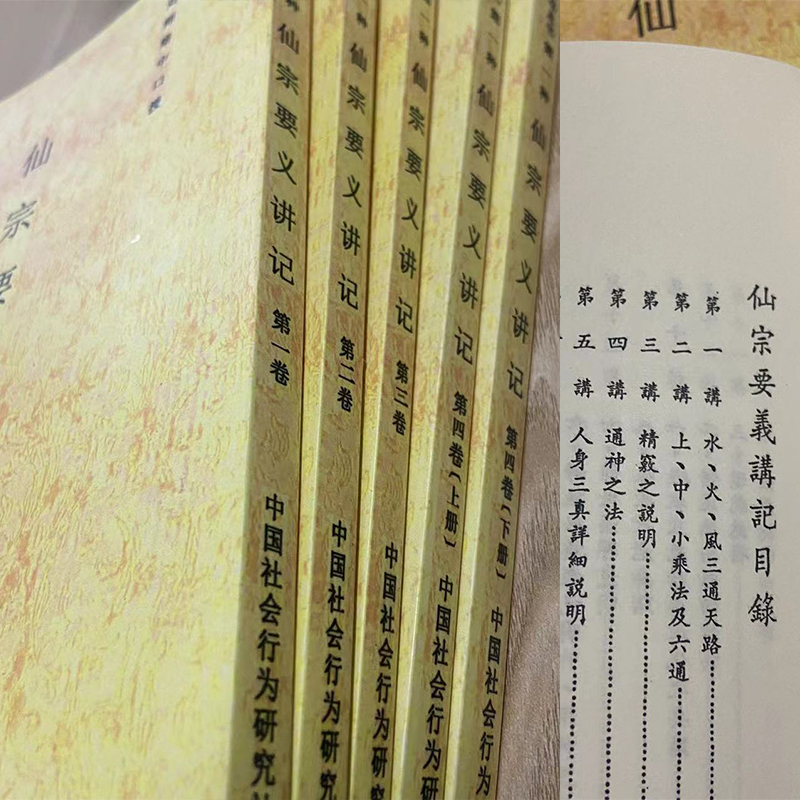 仙宗要
仙宗要义讲记 第一卷 中国社会行为研究
第一种 仙宗要义讲记 第二卷 中国社会行为研究
第一种 仙宗要义讲记 第三卷 中国社会行为研究
第一种 仙宗要义讲记 第四卷(上册) 中国社会行为研
第一种 仙宗要义讲记 第四卷(下册) 中国社会行为
仙
仙宗要義講記目錄
第一講 水、火、風三通天路
第二講 上、中、小乘法及六通
第三講 精竅之說明
第四講 通神之法
第五講 人身三真詳細說明